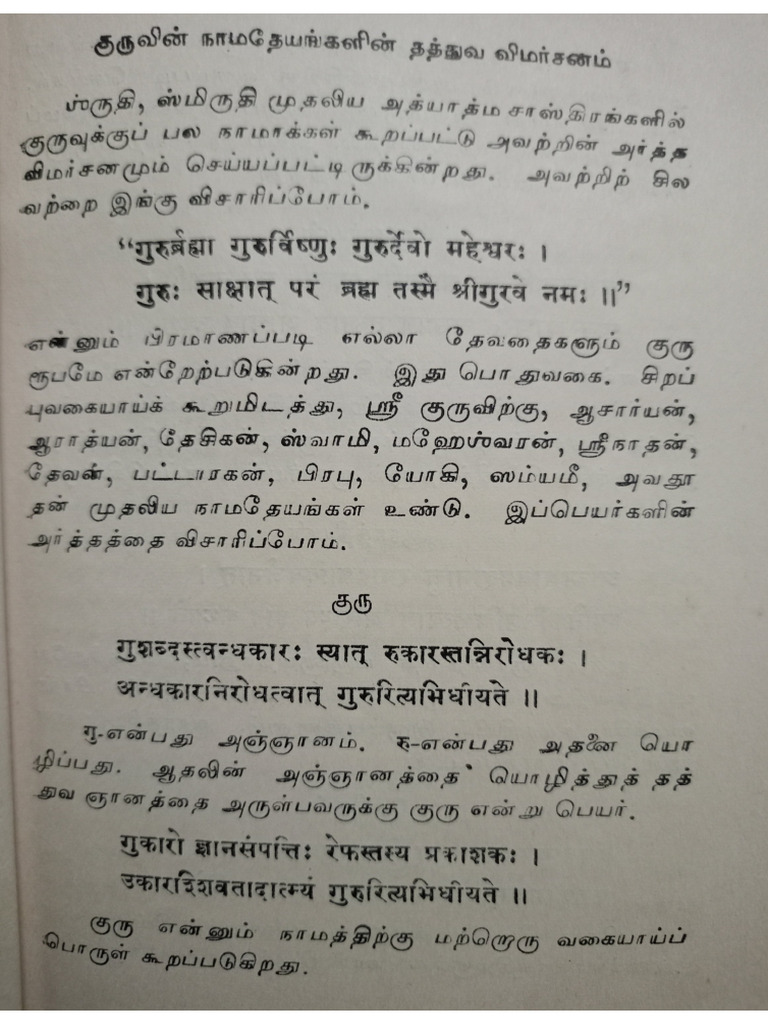 குருவின் நாமதேயங்களின் தத்துவ விமர்சனம்
ஶ்ருதி, ஸ்மிருதி முதலிய அத்யாத்ம சாஸ்திரங்களில்
குருவுக்குப் பல நாமாக்கள் கூறப்பட்டு அவற்றின் அர்த்த
விமர்சனமும் செய்யப்பட்டி ருக்கின்றது. அவற்றிற் சில
வற்றை இங்கு விசாரிப்போம்.
“गुरुर्ब्रह्मा गुरुर्विष्णुः गुरुर्देवो महेश्वरः ।
गुरुः साक्षात् परं ब्रह्म तस्मै श्रीगुरवे नमः ॥”
என்னும் பிரமாணப்படி எல்லா தேவதைகளும் குரு
ரூபமே என்றேற்படுகின்றது. இது பொதுவகை. சிறப்
புவகையாய்க் கூறுமிடத்து, ஸ்ரீ குருவிற்கு, ஆசார்யன்,
ஆராத்யன், தேசிகன், ஸ்வாமி, மஹேஶ்வரன், ஸ்ரீநாதன்,
தேவன், பட்டாரகன், பிரபு, யோகி, ஸம்யமீ, அவதூ
தன் முதலிய நாமதேயங்கள் உண்டு. இப்பெயர்களின்
அர்த்தத்தை விசாரிப்போம்.
குரு
गुशब्दस्त्वन्धकारः स्यात् रुकारस्तन्निरोधकः ।
अन्धकारनिरोधत्वात् गुरुरित्यभिधीयते ॥
गु-என்பது அஞ்ஞானம். रु-என்பது அதனை யொ
ழிப்பது. ஆதலின் அஞ்ஞானத்தை யொழித்துத் தத்
துவ ஞானத்தை அருள்பவருக்கு குரு என்று பெயர்.
गुकारो ज्ञानसंपत्तिः रेफस्तस्य प्रकाशकः ।
उकारश्शिवतादात्म्यं गुरुरित्यभिधीयते ॥
குரு என்னும் நாமத்திற்கு மற்றொரு வகையாய்ப்
பொருள் கூறப்படுகிறது.